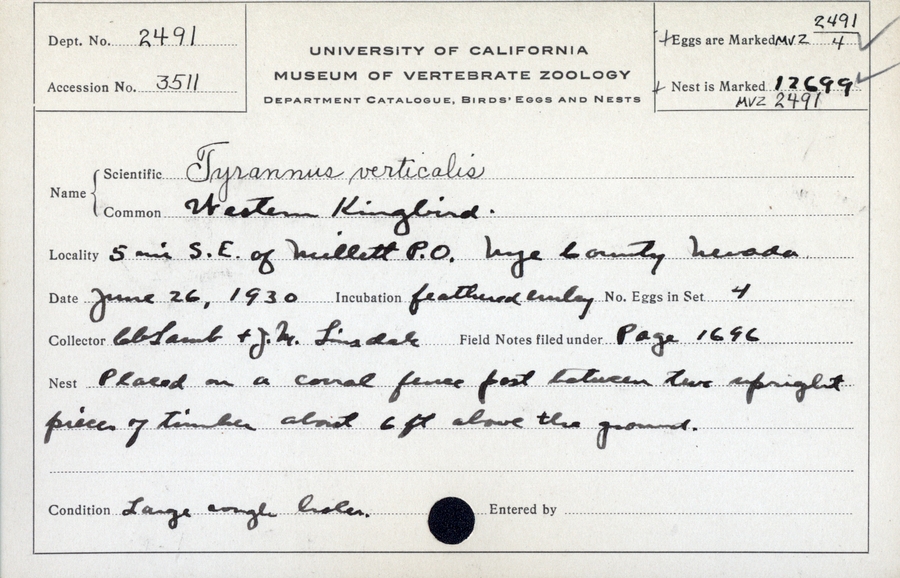 Dept. No. 2491
Accession No. 3511
UNIVERSITY OF CALIFORNIA
MUSEUM OF VERTEBRATE ZOOLOGY
DEPARTMENT CATALOGUE, BIRDS' EGGS AND NESTS
Eggs are Marked MVZ 2491/4
Nest is Marked 12699
MVZ 2491
Name
Scientific Tyrannus verticalis
Common Western Kingbird.
Locality 5 mi S.E. of Millett P.O. Nye County Nevada
Date June 26, 1930 Incubation feathered No. Eggs in Set 4
Collector Lamb + J.M. Linsdale Field Notes filed under Page 1696
Nest Placed on a corral fence post between two upright
pieces of timber about 6 ft above the ground.
Condition Large rough holes.
Entered by